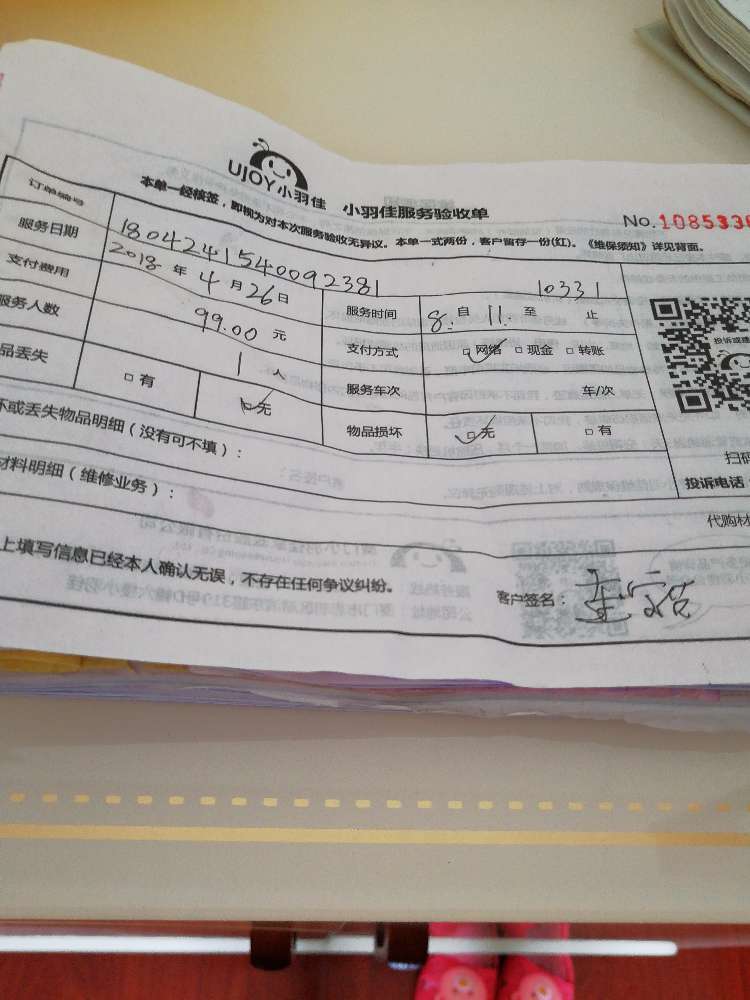 UJOY小羽佳 小羽佳服务验收单
No.1085336
本单一经核签，即视为对本次服务验收无异议。本单一式两份，客户留存一份(红)。《维保须知》详见背面。
订单编号 1804241540092381 10331
服务日期 2018年4月26日 服务时间 8:自11:至 止
支付费用 99.00元 支付方式 □网络 □现金 □转账
服务人数 1人 服务车次 车/次
品丢失 □有 □无 物品损坏 □无 □有
坏或丢失物品明细（没有可不填）：
扫码
投诉电话：
材料明细（维修业务）：
代购材
上填写信息已经本人确认无误，不存在任何争议纠纷。
客户签名：